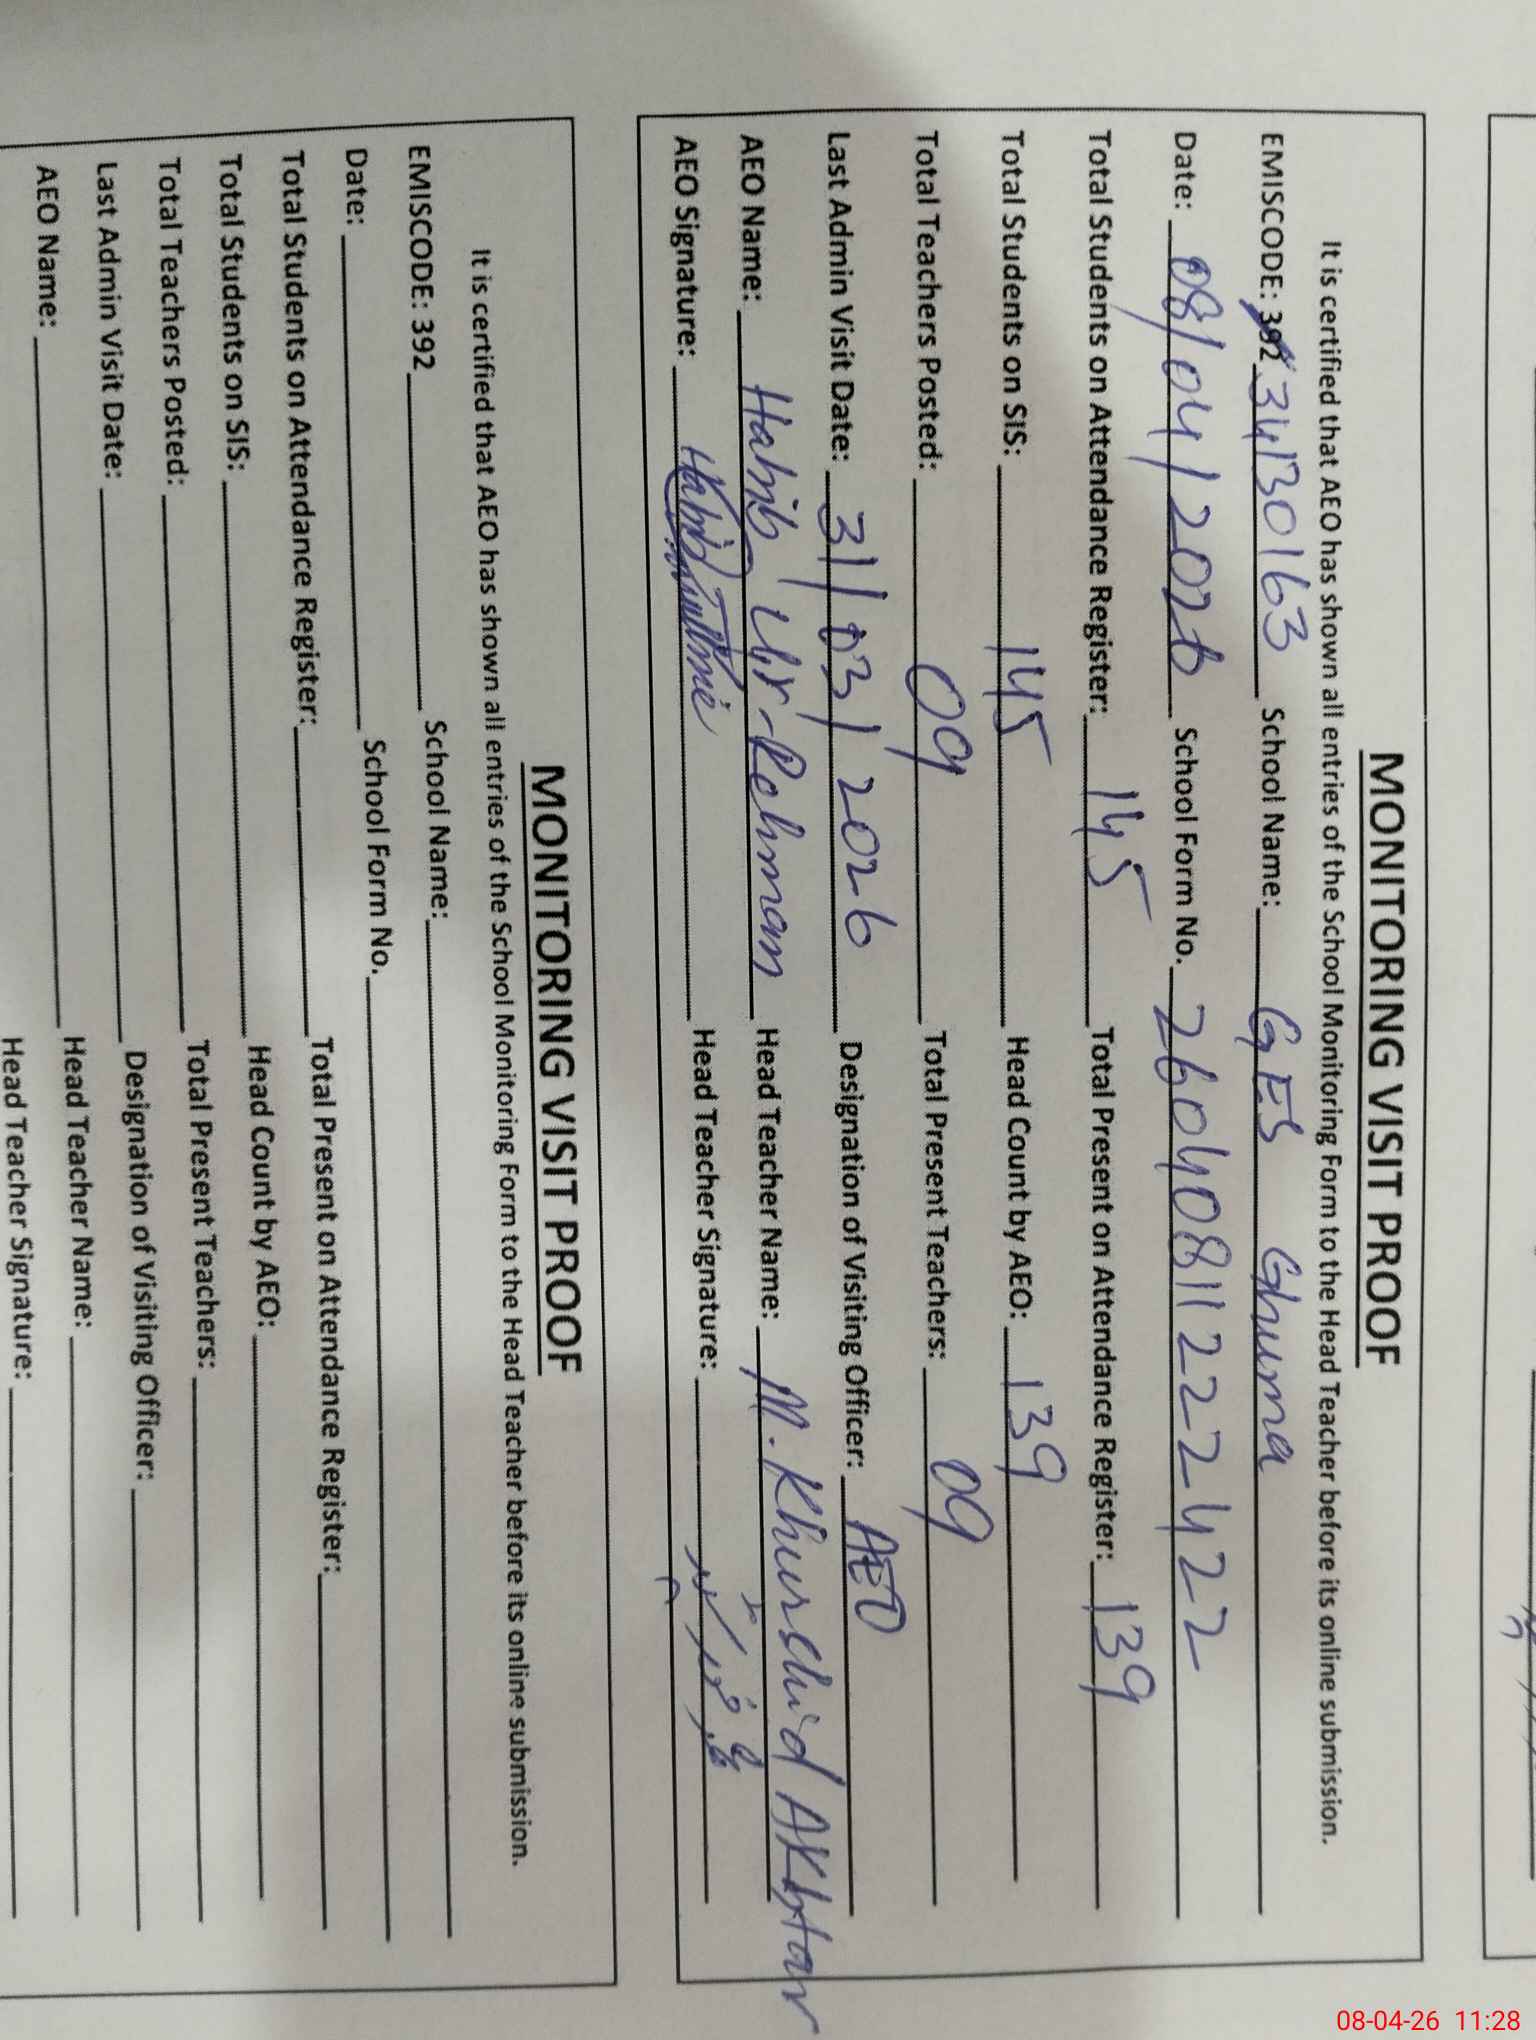 MONITORING VISIT PROOF
It is certified that AEO has shown all entries of the School Monitoring Form to the Head Teacher before its online submission.
EMISCODE: 392 34130163 School Name: GES Ghuma
Date: 08/04/2026 School Form No. 26040811222422
Total Students on Attendance Register: 145 Total Present on Attendance Register: 139
Total Students on SIS: 145 Head Count by AEO: 139
Total Teachers Posted: 09 Total Present Teachers: 09
Last Admin Visit Date: 31/03/2026 Designation of Visiting Officer: AEO
AEO Name: Habib Ur-Rehman Head Teacher Name: M. Khurshid Akhtar
AEO Signature: Head Teacher Signature:
MONITORING VISIT PROOF
It is certified that AEO has shown all entries of the School Monitoring Form to the Head Teacher before its online submission.
EMISCODE: 392 School Name:
Date: School Form No.
Total Students on Attendance Register: Total Present on Attendance Register:
Total Students on SIS: Head Count by AEO:
Total Teachers Posted: Total Present Teachers:
Last Admin Visit Date: Designation of Visiting Officer:
AEO Name: Head Teacher Name:
Head Teacher Signature:
08-04-26 11:28